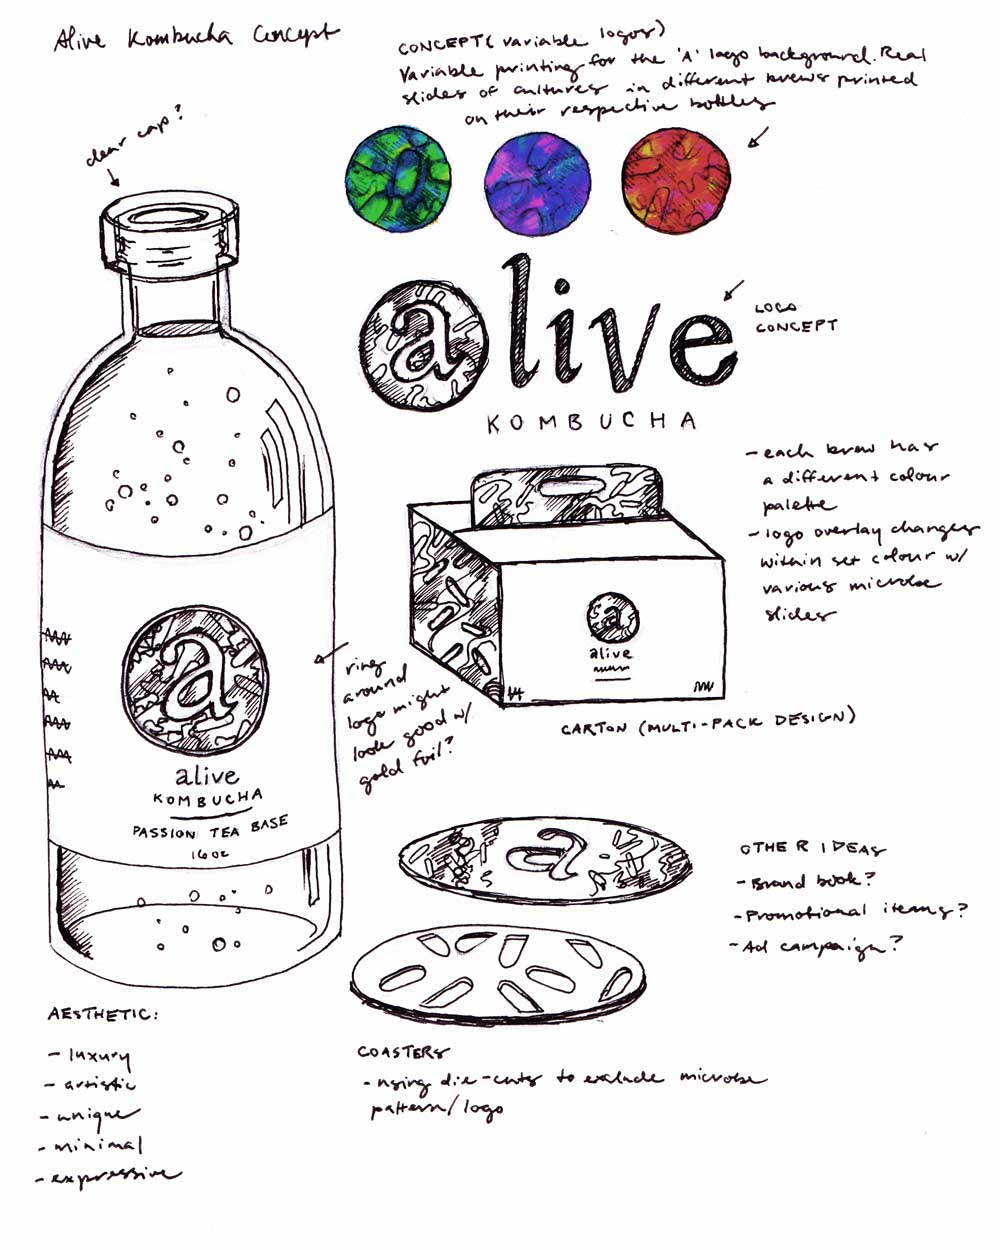 Alive Kombucha Concept
CONCEPT (variable logos)
Variable printing for the 'A' logo background. Real
slides of cultures in different brews printed
on their respective bottles
clear cap?
alive
KOMBUCHA
LOGO
CONCEPT
- each brew has
a different colour
palette
- logo overlay changes
within set colour w/
various microbe
slides
a
alive
CARTON (MULTI-PACK DESIGN)
ring
around
logo might
look good w/
gold foil?
a
alive
KOMBUCHA
PASSION TEA BASE
16 oz
a
OTHER IDEAS
- Brand book?
- Promotional items?
- Ad campaign?
AESTHETIC:
- luxury
- artistic
- unique
- minimal
- expressive
COASTERS
- using die-cuts to microbe
pattern/logo